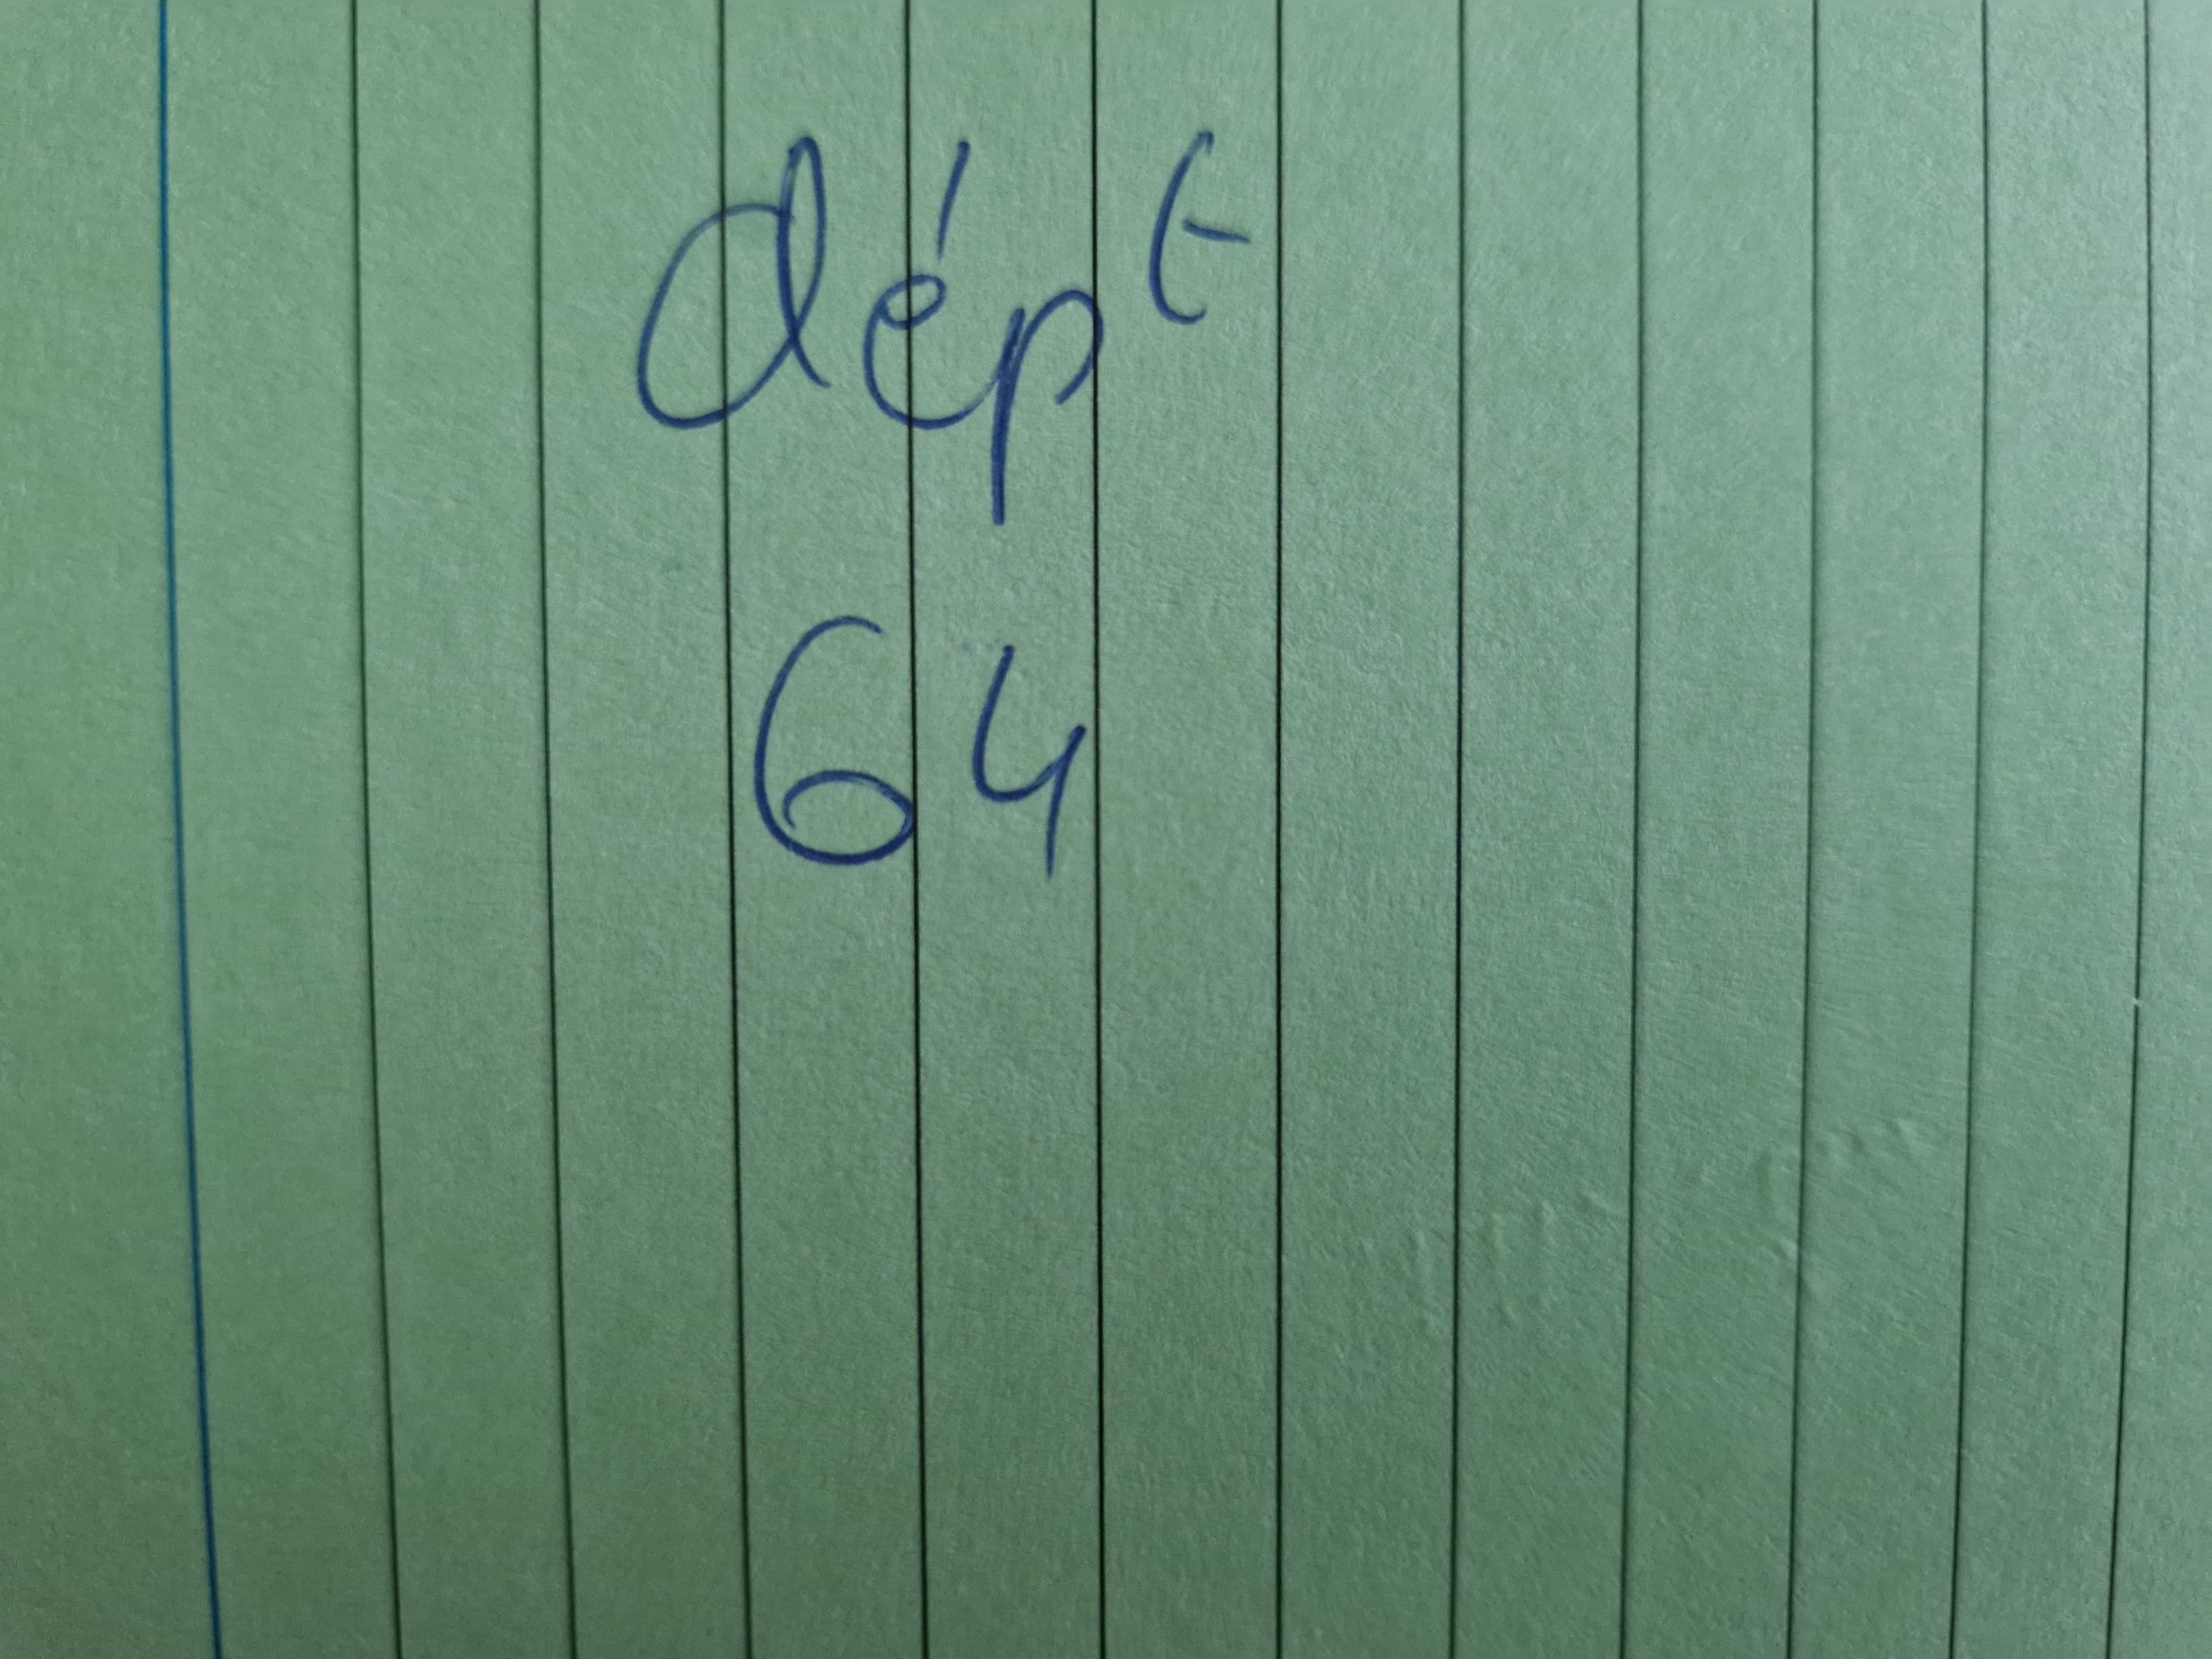 dépt
64